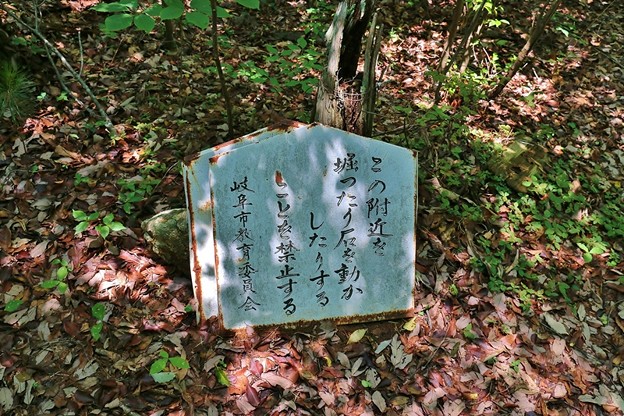 この附近を
堀つたり石を動か
したりする
ことを禁止する
岐阜市教育委員会